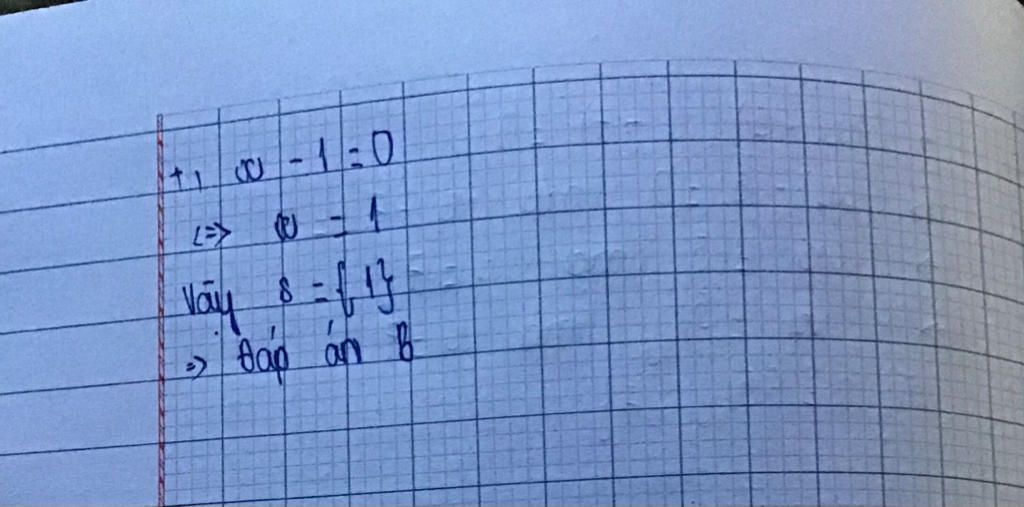 +, x - 1 = 0
<=> x = 1
Vậy S = {1}
=> Đáp án B